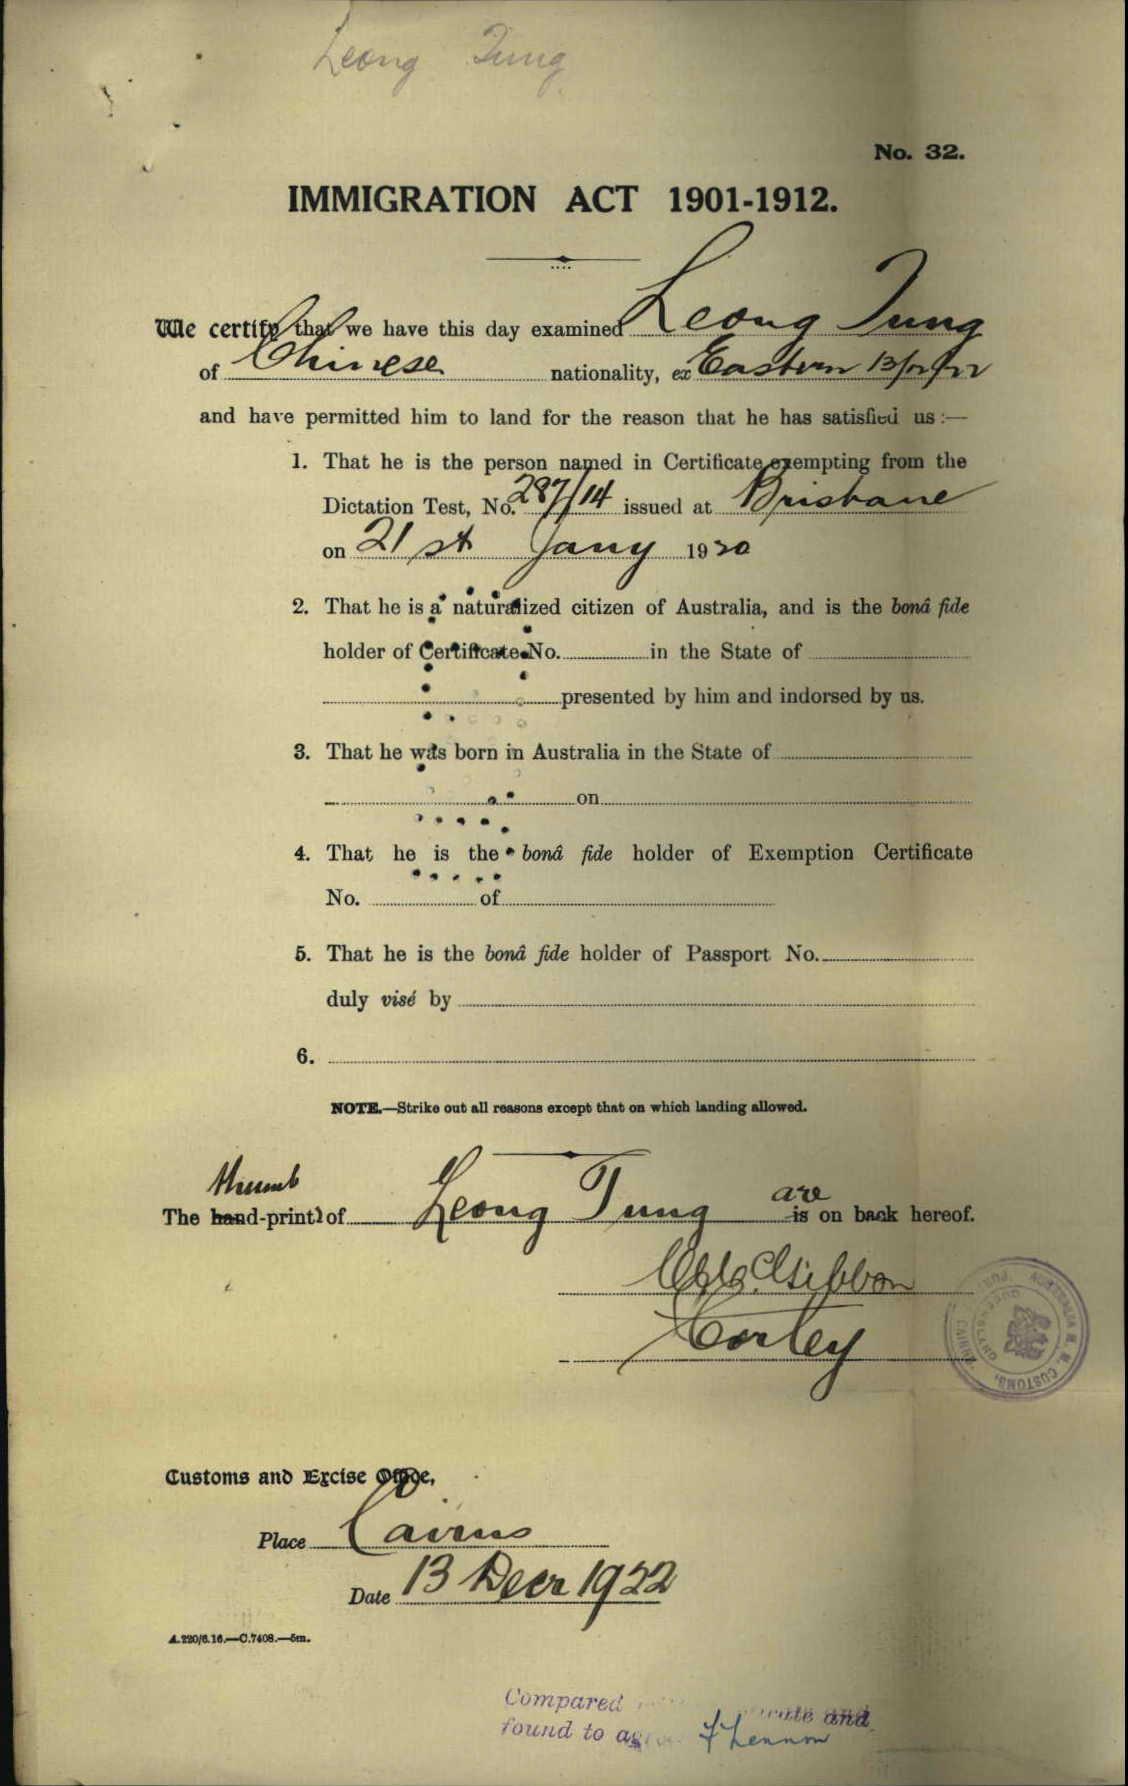 Leong Tung
No. 32.
IMMIGRATION ACT 1901-1912.
We certify that we have this day examined Leong Tung
of Chinese nationality, ex Eastern 13/12/22
and have permitted him to land for the reason that he has satisfied us :—
1. That he is the person named in Certificate exempting from the
Dictation Test, No. 287/14 issued at Brisbane
on 21st Jany 1920
2. That he is a naturalized citizen of Australia, and is the bonâ fide
holder of Certificate No. in the State of
presented by him and indorsed by us.
3. That he was born in Australia in the State of
on
4. That he is the bonâ fide holder of Exemption Certificate
No. of
5. That he is the bonâ fide holder of Passport No.
duly visé by
6.
NOTE.—Strike out all reasons except that on which landing allowed.
thumb are
The hand-prints of Leong Tung is on back hereof.
Gibbon
Corley
AUSTRALIA H. M. CUSTOMS. CAIRNS. PORT
QUEENSLAND
Customs and Excise Office,
Place Cairns
Date 13 Decr 1922
A.220/6.16.—C.7408.—5m.
Compared and
found to F Lennon